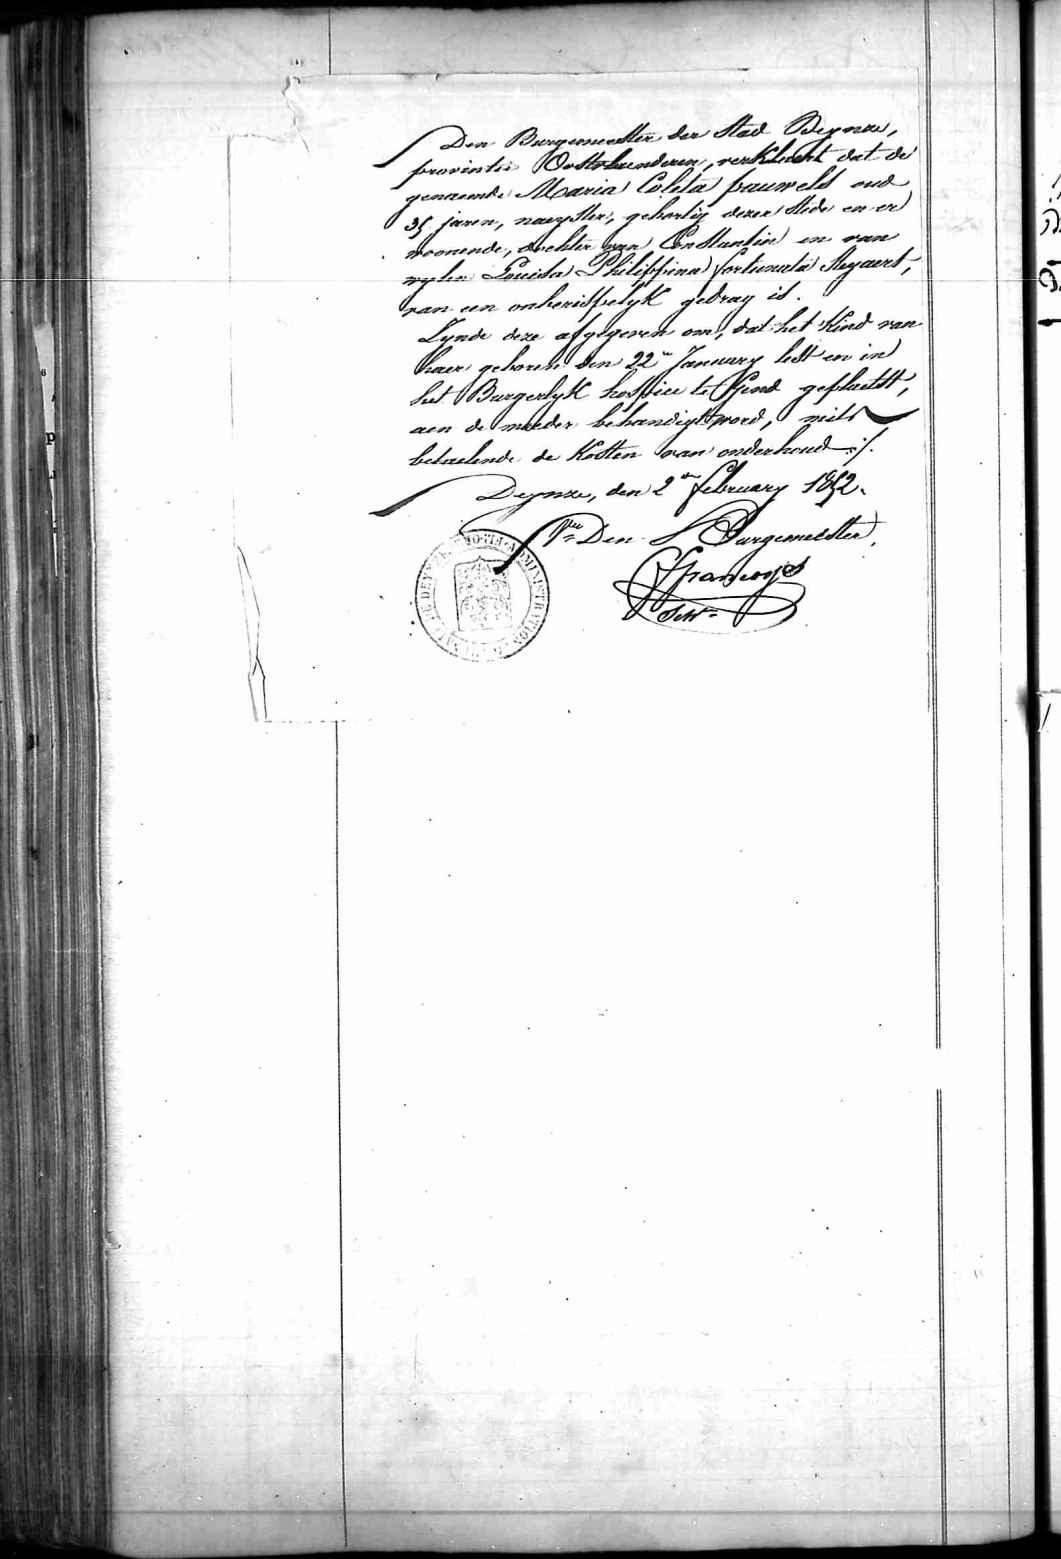 Den Burgemeester der Stad Deynze,
provintie Oostvlaenderen, verklaert dat de
genaemde Maria Coleta pauwels oud
35 jaren, naeyster, geboortig dezer Stede en er
woonende, dochter van Constantin en van
wylen Louisa Philippina fortunata Steyaert,
van een onberispelyk gedrag is.
Zynde deze afgegeven om, dat het Kind van
haer geboren den 22n January lest en in
het Burgerlyk hospice te Gend geplaetst,
aen de moeder behandigt word, mits
betaelende de Kosten van onderhoud ./.
Deynze, den 2 february 1852.
Den Burgemeester,
francoys
Secr
ADMINISTRATION DE DEYNZE